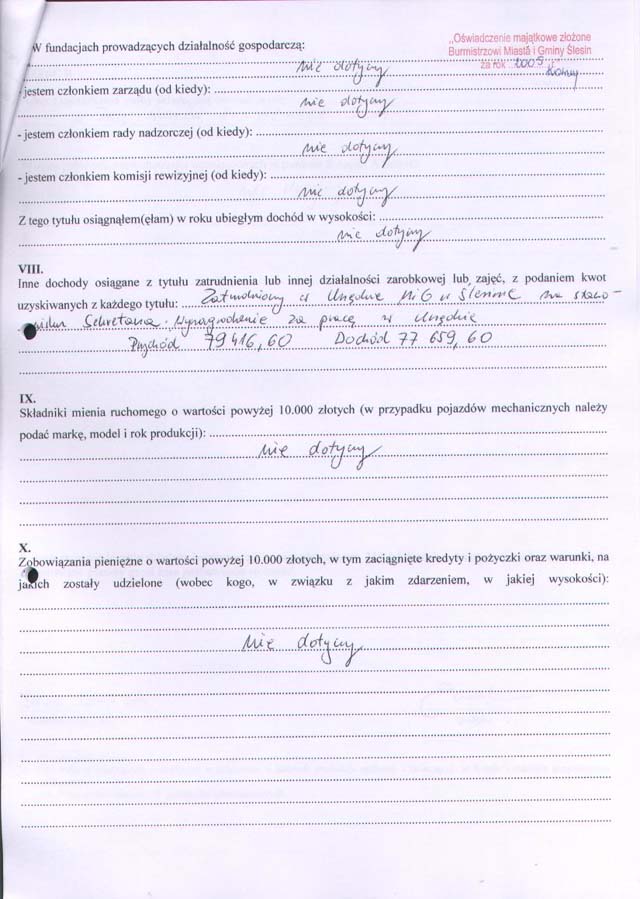 „Oświadczenie majątkowe złożone
Burmistrzowi Miasta i Gminy Ślesin
za rok 2005 r"
W fundacjach prowadzących działalność gospodarczą:
nie dotyczy
- jestem członkiem zarządu (od kiedy):
nie dotyczy
- jestem członkiem rady nadzorczej (od kiedy):
nie dotyczy
- jestem członkiem komisji rewizyjnej (od kiedy):
nie dotyczy
Z tego tytułu osiągnąłem(ęłam) w roku ubiegłym dochód w wysokości:
nie dotyczy
VIII.
Inne dochody osiągane z tytułu zatrudnienia lub innej działalności zarobkowej lub zajęć, z podaniem kwot
uzyskiwanych z każdego tytułu: Zatrudniony w Urzędzie MiG w Ślesinie na stano-
wisku Sekretarza. Wynagrodzenie za pracę w Urzędzie
Przychód 79 416,60 Dochód 77 659,60
IX.
Składniki mienia ruchomego o wartości powyżej 10.000 złotych (w przypadku pojazdów mechanicznych należy
podać markę, model i rok produkcji):
nie dotyczy
X.
Zobowiązania pieniężne o wartości powyżej 10.000 złotych, w tym zaciągnięte kredyty i pożyczki oraz warunki, na
jakich zostały udzielone (wobec kogo, w związku z jakim zdarzeniem, w jakiej wysokości):
nie dotyczy